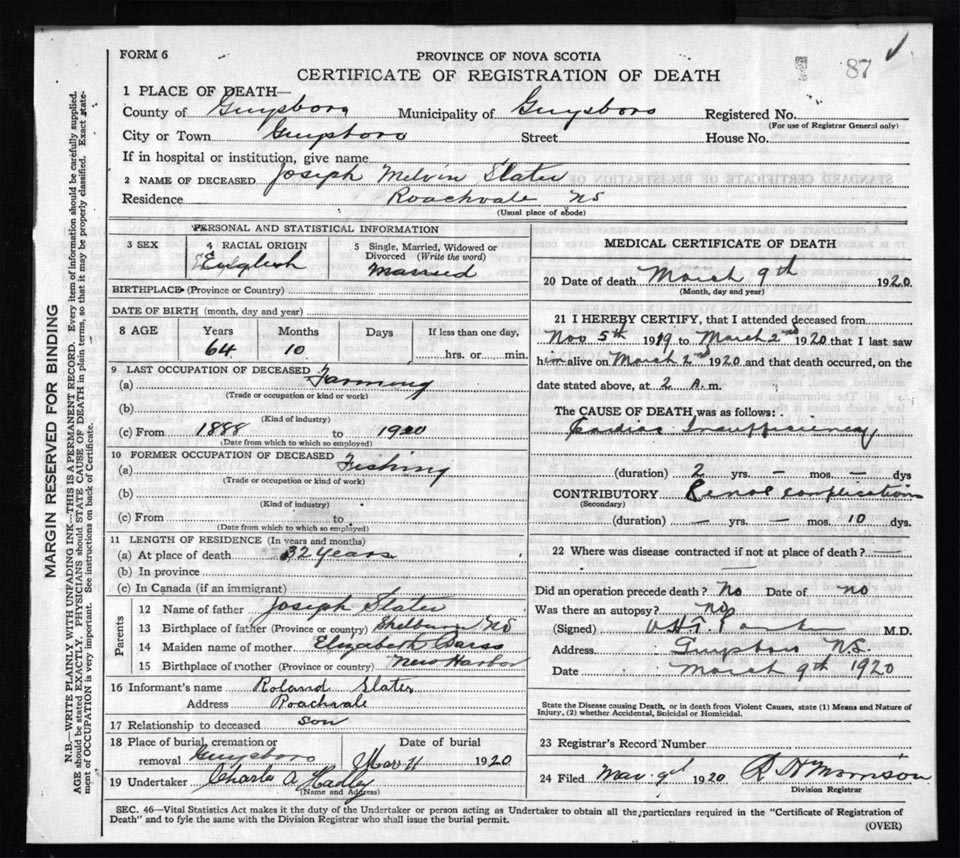 FORM 6
PROVINCE OF NOVA SCOTIA
CERTIFICATE OF REGISTRATION OF DEATH
87
1 PLACE OF DEATH—
County of Guysboro Municipality of Guysboro Registered No.
(For use of Registrar General only)
City or Town Guysboro Street House No.
If in hospital or institution, give name
2 NAME OF DECEASED Joseph Melvin Slater
Residence Roachvale NS
(Usual place of abode)
PERSONAL AND STATISTICAL INFORMATION
3 SEX 4 RACIAL ORIGIN 5 Single, Married, Widowed or Divorced (Write the word)
English Married
BIRTHPLACE (Province or Country)
DATE OF BIRTH (month, day and year)
8 AGE Years Months Days If less than one day,
64 10 hrs. or min.
9 LAST OCCUPATION OF DECEASED
(a) Farming
(Trade or occupation or kind or work)
(b)
(Kind of industry)
(c) From 1888 to 1920
(Date from which to which so employed)
10 FORMER OCCUPATION OF DECEASED
(a) Fishing
(Trade or occupation or kind of work)
(b)
(Kind of industry)
(c) From to
(Date from which to which so employed)
11 LENGTH OF RESIDENCE (In years and months)
(a) At place of death 32 years
(b) In province
(c) In Canada (if an immigrant)
Parents
12 Name of father Joseph Slater
13 Birthplace of father (Province or country) Shelburn NS
14 Maiden name of mother Elizabeth
15 Birthplace of mother (Province or country) New Harbor
16 Informant's name Roland Slater
Address Roachvale
17 Relationship to deceased son
18 Place of burial, cremation or removal Guysboro Date of burial Mar 11 1920
19 Undertaker Charles A. Hadley
(Name and Address)
MEDICAL CERTIFICATE OF DEATH
20 Date of death March 9th 1920
(Month, day and year)
21 I HEREBY CERTIFY, that I attended deceased from
Nov 5th 1919 to March 2nd 1920 that I last saw
him alive on March 2nd 1920 and that death occurred, on the
date stated above, at 2 A. m.
The CAUSE OF DEATH was as follows:
Cardiac Insufficiency
(duration) 2 yrs. — mos. — dys
CONTRIBUTORY Renal complications
(Secondary)
(duration) — yrs. — mos. 10 dys.
22 Where was disease contracted if not at place of death? —
Did an operation precede death? No Date of no
Was there an autopsy? no
(Signed) M.D.
Address Guysboro N.S.
Date March 9th 1920
State the Disease causing Death, or in death from Violent Causes, state (1) Means and Nature of
Injury, (2) whether Accidental, Suicidal or Homicidal.
23 Registrar's Record Number
24 Filed Mar 9th 1920 Morrison
Division Registrar
SEC. 46—Vital Statistics Act makes it the duty of the Undertaker or person acting as Undertaker to obtain all the particulars required in the "Certificate of Registration of
Death" and to fyle the same with the Division Registrar who shall issue the burial permit.
(OVER)
MARGIN RESERVED FOR BINDING
N.B.—WRITE PLAINLY WITH UNFADING INK—THIS IS A PERMANENT RECORD. Every item of information should be carefully supplied.
AGE should be stated EXACTLY. PHYSICIANS should STATE CAUSE OF DEATH in plain terms, so that it may be properly classified. Exact state-
ment of OCCUPATION is very important. See instructions on back of Certificate.